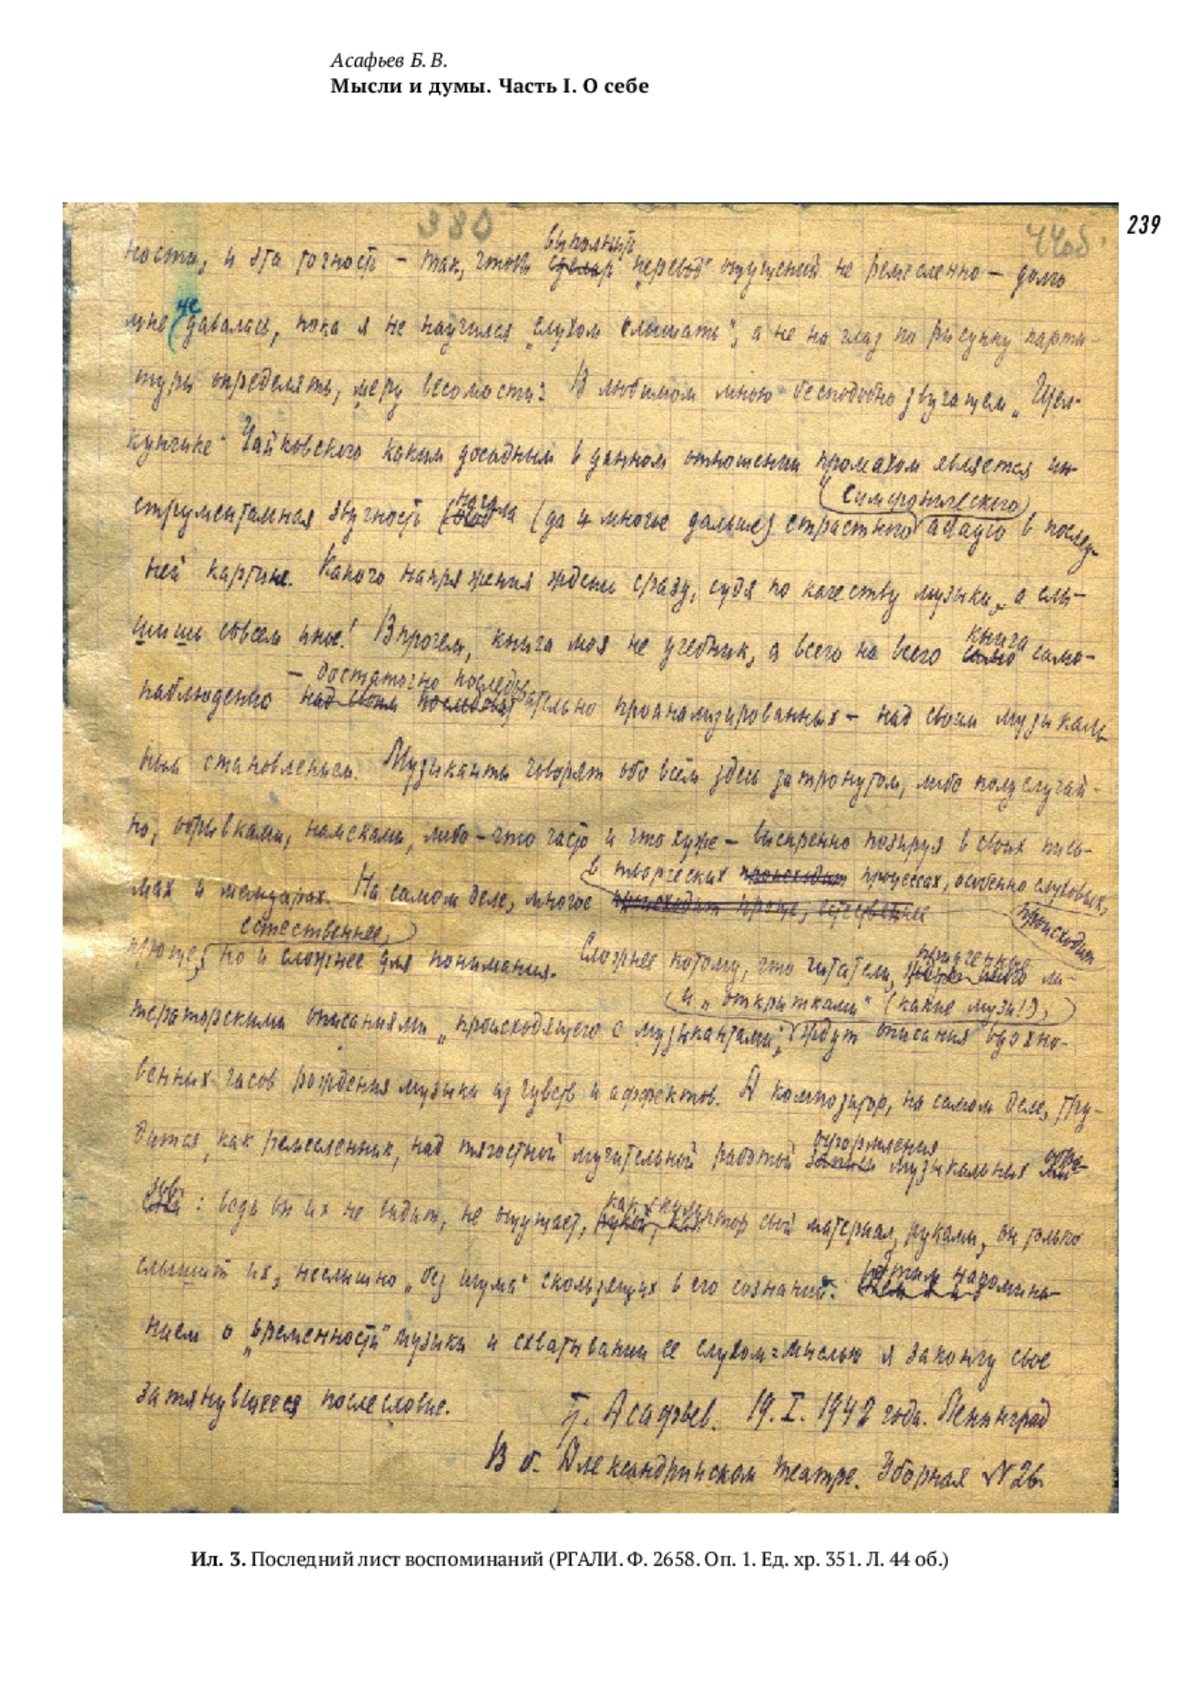 Асафьев Б. В.
Мысли и думы. Часть I. О себе
239
380
44об.
выполнить
ности, и эта точность – так, чтобы сделать "перевод" ощущений не ремесленно – долго
не
мне давалась, пока я не научился "слухом слышать", а не на глаз по рисунку парти-
туры определять "меру весомости". В любимом мною бесподобно звучащем "Щел-
кунчике" Чайковского каким досадным в данном отношении промахом является ин-
симфонического
струментальная звучность начала (да и многое дальше) страстного adagio в послед-
ней картине. Какого напряжения ждешь сразу, судя по качеству музыки, а слы-
книга
шишь совсем иное! Впрочем, книга моя не учебник, а всего на всего само-
– достаточно последов
наблюдений над своим последовательно проанализированных – над своим музыкаль-
ным становлением. Музыканты говорят обо всём здесь затронутом, либо полуслучай-
но, обрывками, намеками, либо – что часто и что хуже – выспренно позируя в своих пись-
в творческих происходит процессах, особенно слуховых,
мах и мемуарах. На самом деле, многое происходит проще, естественнее
происходит
естественнее,
проще, но и сложнее для понимания. Сложнее потому, что читатели, приученные ли-
и "открытками" (какие музы!),
тераторскими описаниями "происходящего с музыкантами", ждут описания вдохно-
венных часов рождения музыки из чувств и аффектов. А композитор, на самом деле, тру-
оформления
дится, как ремесленник, над тягостной мучительной работой записи музыкальных обра-
зов: ведь он их не видит, не ощущает, как скульптор свой материал, руками, он только
слышит их, неслышно "без шума" скользящих в его сознании. Этим напомина-
нием о "временности" музыки и схватывании ее слухом=мыслью я закончу свое
затянувшееся послесловие.
Б. Асафьев. 19.I.1942 года. Ленинград
В б. Александринском театре. Уборная №26.
Ил. 3. Последний лист воспоминаний (РГАЛИ. Ф. 2658. Оп. 1. Ед. хр. 351. Л. 44 об.)